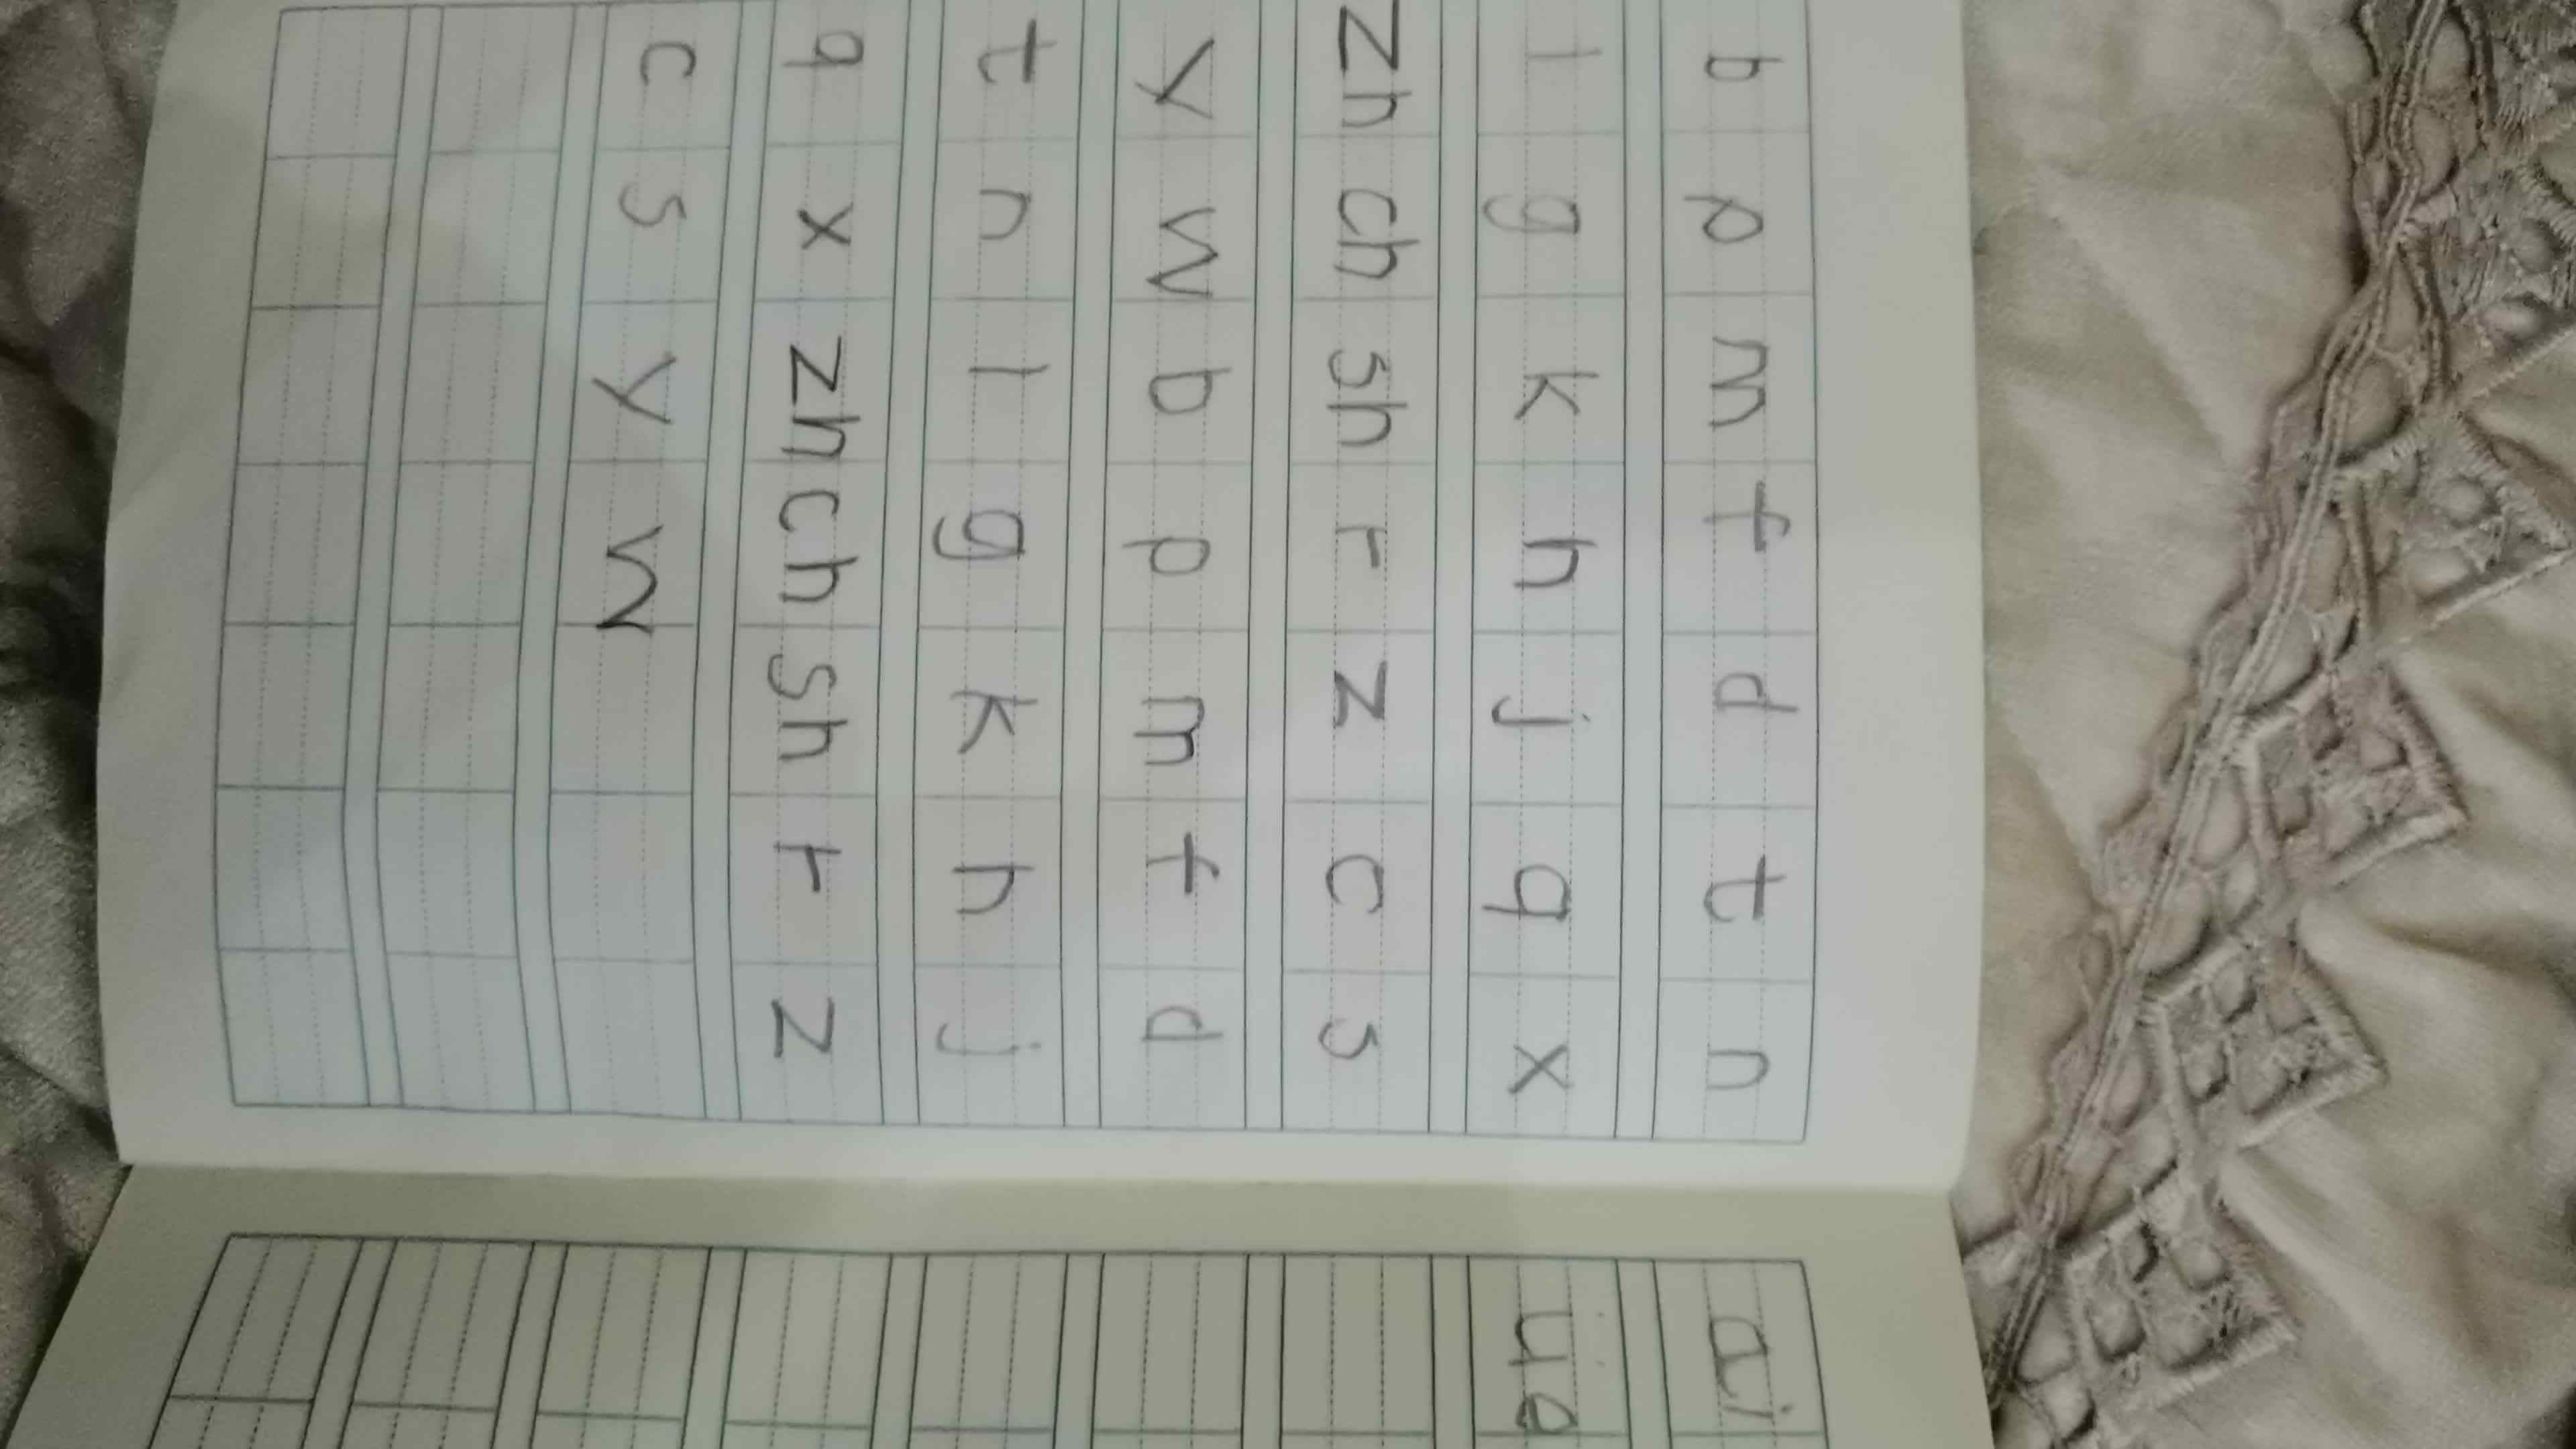 b p m f d t n
l g k h j q x
zh ch sh r z c s
y w b p m f d
t n l g k h j
q x zh ch sh r z
c s y w
ai
üe